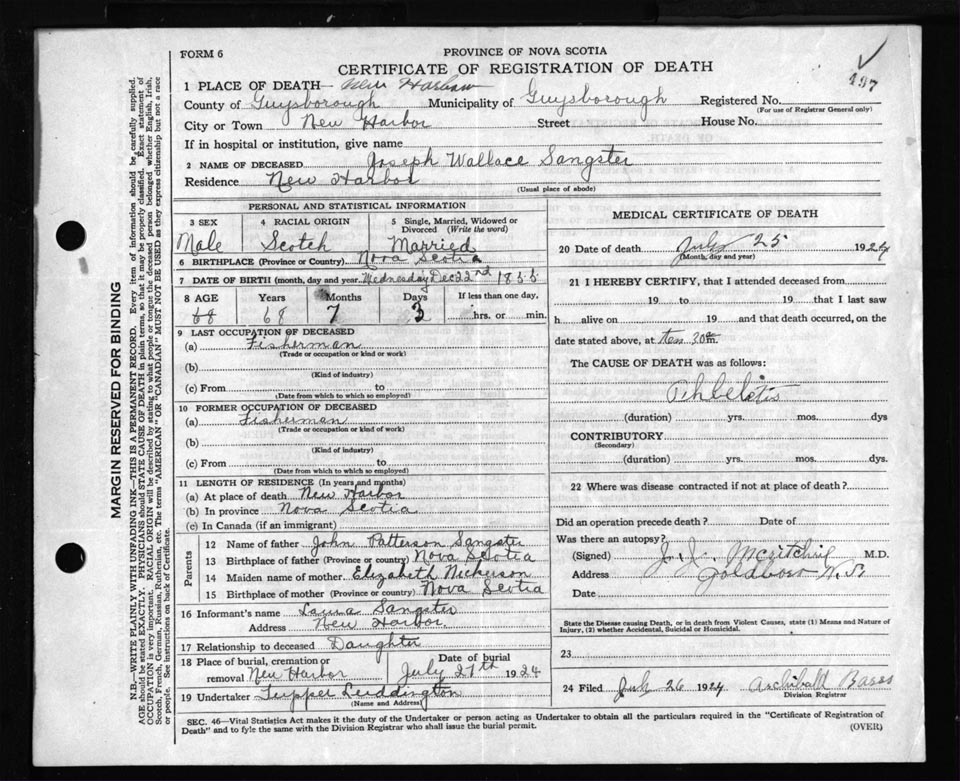 FORM 6
PROVINCE OF NOVA SCOTIA
CERTIFICATE OF REGISTRATION OF DEATH
1 PLACE OF DEATH— New Harbor
County of Guysborough Municipality of Guysborough Registered No. 197
(For use of Registrar General only)
City or Town New Harbor Street House No.
If in hospital or institution, give name
2 NAME OF DECEASED Joseph Wallace Sangster
Residence New Harbor
(Usual place of abode)
PERSONAL AND STATISTICAL INFORMATION
3 SEX 4 RACIAL ORIGIN 5 Single, Married, Widowed or Divorced (Write the word)
Male Scotch Married
6 BIRTHPLACE (Province or Country) Nova Scotia
7 DATE OF BIRTH (month, day and year) Wednesday Dec 22nd 1855
8 AGE Years Months Days If less than one day,
68 68 7 3 hrs. or min.
9 LAST OCCUPATION OF DECEASED
(a) Fisherman
(Trade or occupation or kind or work)
(b)
(Kind of industry)
(c) From to
(Date from which to which so employed)
10 FORMER OCCUPATION OF DECEASED
(a) Fisherman
(Trade or occupation or kind of work)
(b)
(Kind of industry)
(c) From to
(Date from which to which so employed)
11 LENGTH OF RESIDENCE (In years and months)
(a) At place of death New Harbor
(b) In province Nova Scotia
(c) In Canada (if an immigrant)
Parents
12 Name of father John Patterson Sangster
13 Birthplace of father (Province or country) Nova Scotia
14 Maiden name of mother Elizabeth Nickerson
15 Birthplace of mother (Province or country) Nova Scotia
16 Informant's name Laura Sangster
Address New Harbor
17 Relationship to deceased Daughter
18 Place of burial, cremation or removal New Harbor Date of burial July 27th 1924
19 Undertaker Tupper Luddington
(Name and Address)
MEDICAL CERTIFICATE OF DEATH
20 Date of death July 25 1924
(Month, day and year)
21 I HEREBY CERTIFY, that I attended deceased from
19 to 19 that I last saw
h alive on 19 and that death occurred, on the
date stated above, at ten 30 a m.
The CAUSE OF DEATH was as follows:
(duration) yrs. mos. dys
CONTRIBUTORY
(Secondary)
(duration) yrs. mos. dys.
22 Where was disease contracted if not at place of death?
Did an operation precede death? Date of
Was there an autopsy?
(Signed) J. J. McRitchie M.D.
Address Goldboro N.S.
Date
State the Disease causing Death, or in death from Violent Causes, state (1) Means and Nature of Injury, (2) whether Accidental, Suicidal or Homicidal.
23
24 Filed July 26 1924 Archibald
Division Registrar
SEC. 46—Vital Statistics Act makes it the duty of the Undertaker or person acting as Undertaker to obtain all the particulars required in the "Certificate of Registration of
Death" and to fyle the same with the Division Registrar who shall issue the burial permit.
(OVER)
MARGIN RESERVED FOR BINDING
N.B.—WRITE PLAINLY WITH UNFADING INK—THIS IS A PERMANENT RECORD. Every item of information should be carefully supplied.
AGE should be stated EXACTLY. PHYSICIANS should STATE CAUSE OF DEATH in plain terms, so that it may be properly classified. Exact statement of
OCCUPATION is very important. RACIAL ORIGIN will be described by stating to what people or tongue the deceased person belonged whether English, Irish,
Scotch, French, German, Russian, Ruthenian, etc. The terms "AMERICAN" OR "CANADIAN" MUST NOT BE USED as they express citizenship but not a race
or people. See instructions on back of Certificate.